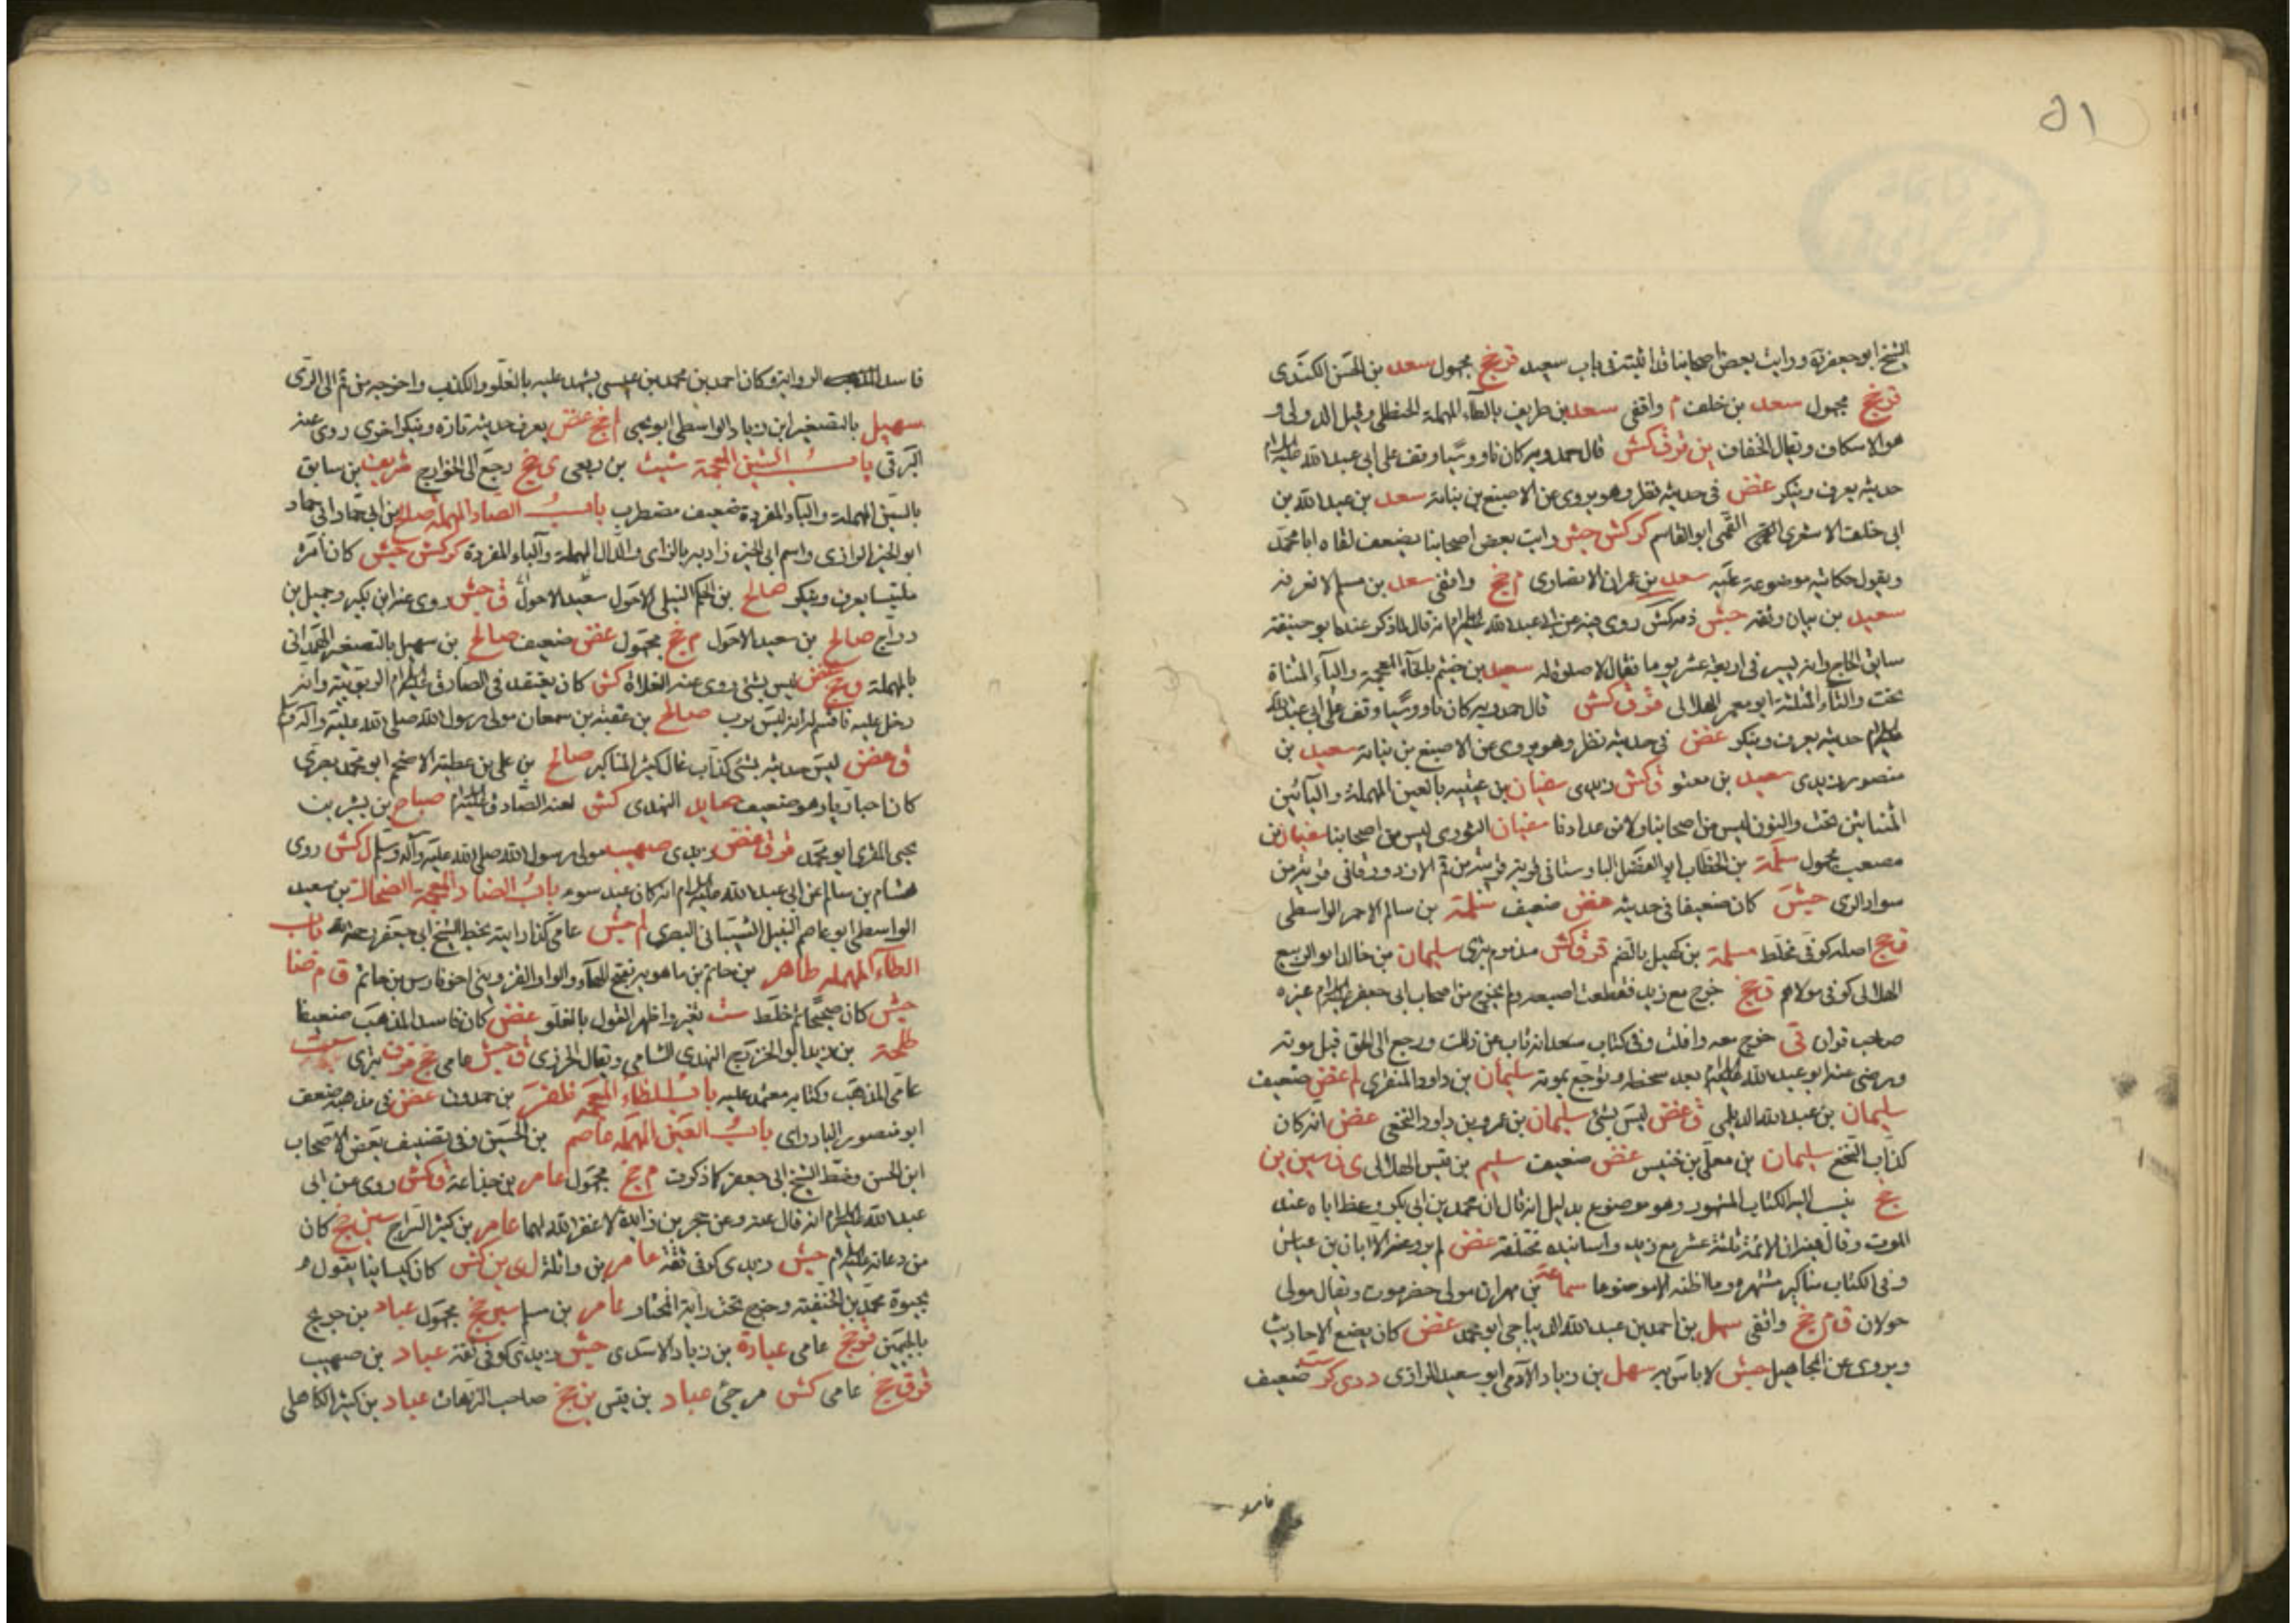 ٥١
الشيخ ابو جعفر ره ورايت بعض اصحابنا قد اثبته فى باب سعيد قر جخ مجهول سعد بن الحسن الكندى
قر جخ مجهول سعد بن خلف م واقفى سعد بن طريف بالطاء المهملة الحنظلى وقيل الدولى و
هو الاسكاف ويقال الخفاف ين قر ق كش قال حمدويه كان ناووسيا وقف على ابى عبد الله عليه السلام
حديثه يعرف وينكر غض فى حديثه نظر وهو يروى عن الاصبغ بن نباتة سعد بن عبد الله بن
ابى خلف الاشعرى القمى ابو القاسم كر كش جش رايت بعض اصحابنا يضعف لقاه ابا محمد
ويقول حكاية موضوعة عليه سعد بن عمران الانصارى م جخ واقفى سعد بن مسلم لا نعرفه
سعيد بن بيان وثقه جش ذمه كش روى فيه عن ابى عبد الله عليه السلام انه قال لما ذكر عنده ابو حنيفة
سابق الحاج وانه يسير فى اربعة عشر يوما فقال لا صلوة له سعيد بن خيثم بالخاء المعجمة والياء المثناة
تحت والثاء المثلثة ابو معمر الهلالى قر ق كش قال حمدويه كان ناووسيا وقف على ابى عبد الله
عليه السلام حديثه يعرف وينكر غض فى حديثه نظر وهو يروى عن الاصبغ بن نباتة سعيد بن
منصور زيدى سعيد بن معتو ق كش زيدى سفيان بن عيينه بالعين المهملة واليائين
المثناتين تحت والنون ليس من اصحابنا ولا من عدادنا سفيان الثورى ليس من اصحابنا سفيان بن
مصعب مجهول سلمة بن الخطاب ابو الفضل البراوستانى قرية من قم الازدورقانى قرية من
سواد الرى جش كان ضعيفا فى حديثه غض ضعيف سلمة بن سالم الاحمر الواسطى
ق جخ اصله كوفى مخلط مسلمة بن كهيل بالضم قر ق كش مذموم بترى سليمان بن خالد ابو الربيع
الهلالى كوفى مولاهم ق جخ خرج مع زيد فقطعت اصبعه ولم يخرج من اصحاب ابى جعفر عليه السلام غيره
صاحب قران قى خرج معه وافلت وفى كتاب سعد انه تاب عن ذلك ورجع الى الحق قبل موته
ورضى عنه ابو عبد الله عليه السلام بعد سخطه وتوجع بموته سليمان بن داود المنقرى لم غض ضعيف
سليمان بن عبد الله الديلمى ق غض ليس بشئ سليمان بن عمرو بن داود النخعى غض انه كان
كذاب النخع سليمان بن معلى بن خنيس غض ضعيف سليم بن قيس الهلالى ى ن سين ين
جخ ينسب اليه الكتاب المشهور وهو موضوع بدليل انه قال ان محمد بن ابى بكر وعظ اباه عند
الموت وقال فيه ان الائمة ثلثة عشر مع زيد واسانيده مختلفة غض لم يرو عنه الا ابان بن عياش
وفى الكتاب مناكير مشتهرة وما اظنه الا موضوعا سماعة بن مهران مولى حضرموت ويقال مولى
خولان ق م جخ واقفى سهل بن احمد بن عبد الله الديباجى ابو محمد غض كان يضع الاحاديث
ويروى عن المجاهيل جش لا باس به سهل بن زياد الادمى ابو سعيد الرازى د دى كر ست ضعيف
فاسد
فاسد الرواية وكان احمد بن محمد بن عيسى يشهد عليه بالغلو والكذب واخرجه من قم الى الرى
سهيل بالتصغير ابن زياد الواسطى ابو يحيى لم جخ غض يعرف حديثه تارة وينكر اخرى روى عنه
البرقى باب الشين المعجمة شبث بن ربعى ى جخ رجع الى الخوارج شريف بن سابق
بالسين المهملة والباء المفردة ضعيف مضطرب باب الصاد المهملة صالح بن ابى حماد
ابو الخير الرازى واسم ابى الخير زاديه بالزاى والدال المهملة والباء المفردة كر كش جش كان امره
ملتبسا يعرف وينكر صالح بن الحكم النيلى الاحول سعيد الاحول ق جش روى عنه ابن بكير وجميل بن
دراج صالح بن سعيد الاحول م جخ مجهول غض ضعيف صالح بن سهيل بالتصغير الهمدانى
بالمهملة ق جخ غض ليس بشئ روى عنه الغلاة كش كان يعتقد فى الصادق عليه السلام الربوبية وانه
دخل عليه فاقسم له انه ليس برب صالح بن عقبة بن سمعان مولى رسول الله صلى الله عليه وآله
ق غض ليس حديثه بشئ كذاب غال كثير المناكير صالح بن على بن عطية الاضخم ابو محمد بصرى
كان اخباريا وهو ضعيف صايد النهدى كش لعنه الصادق عليه السلام صباح بن بشير بن
يحيى المقرى ابو محمد قر ق غض زيدى صهيب مولى رسول الله صلى الله عليه وآله وسلم ل كش روى
هشام بن سالم عن ابى عبد الله عليه السلام انه كان عبد سوء باب الضاد المعجمة الضحاك بن سعيد
الواسطى ابو عاصم النبيل الشيبانى البصرى لم جش عامى كذا رايته بخط الشيخ ابى جعفر رحمه الله باب
الطاء المهملة طاهر بن حاتم بن ماهويه بفتح الهاء والواو القزوينى اخو فارس بن حاتم ق م ضا
جش كان صحيحا ثم خلط ست تغير واظهر القول بالغلو غض كان فاسد المذهب ضعيفا
طلحة بن زيد ابو الخزرج النهدى الشامى ويقال الخزرى ق جش عامى جخ قر ق بترى ست
عامى المذهب وكتابه معتمد عليه باب الظاء المعجمة ظفر بن حمدون غض فى مذهبه ضعف
ابو منصور البادراى باب العين المهملة عاصم بن الحسين وفى تصنيف بعض الاصحاب
ابن الحسن وبخط الشيخ ابى جعفر كما ذكرت م جخ مجهول عامر بن جذاعة ق كش روى عن ابى
عبد الله عليه السلام انه قال عنه وعن حجر بن زايدة لا غفر الله لهما عامر بن كثير السراج سين جخ كان
من دعاته عليه السلام جش زيدى كوفى ثقة عامر بن واثلة ل ى ين كش كان كيسانيا يقول
بحيوة محمد بن الحنفية وخرج تحت راية المختار عامر بن مسلم سين جخ مجهول عباد بن جريج
بالجيمين قر جخ عامى عبادة بن زياد الاسدى جش زيدى كوفى ثقة عباد بن صهيب
قر ق جخ عامى كش مرجئ عباد بن قيس ين جخ صاحب الترهات عباد بن كثير الكاهلى